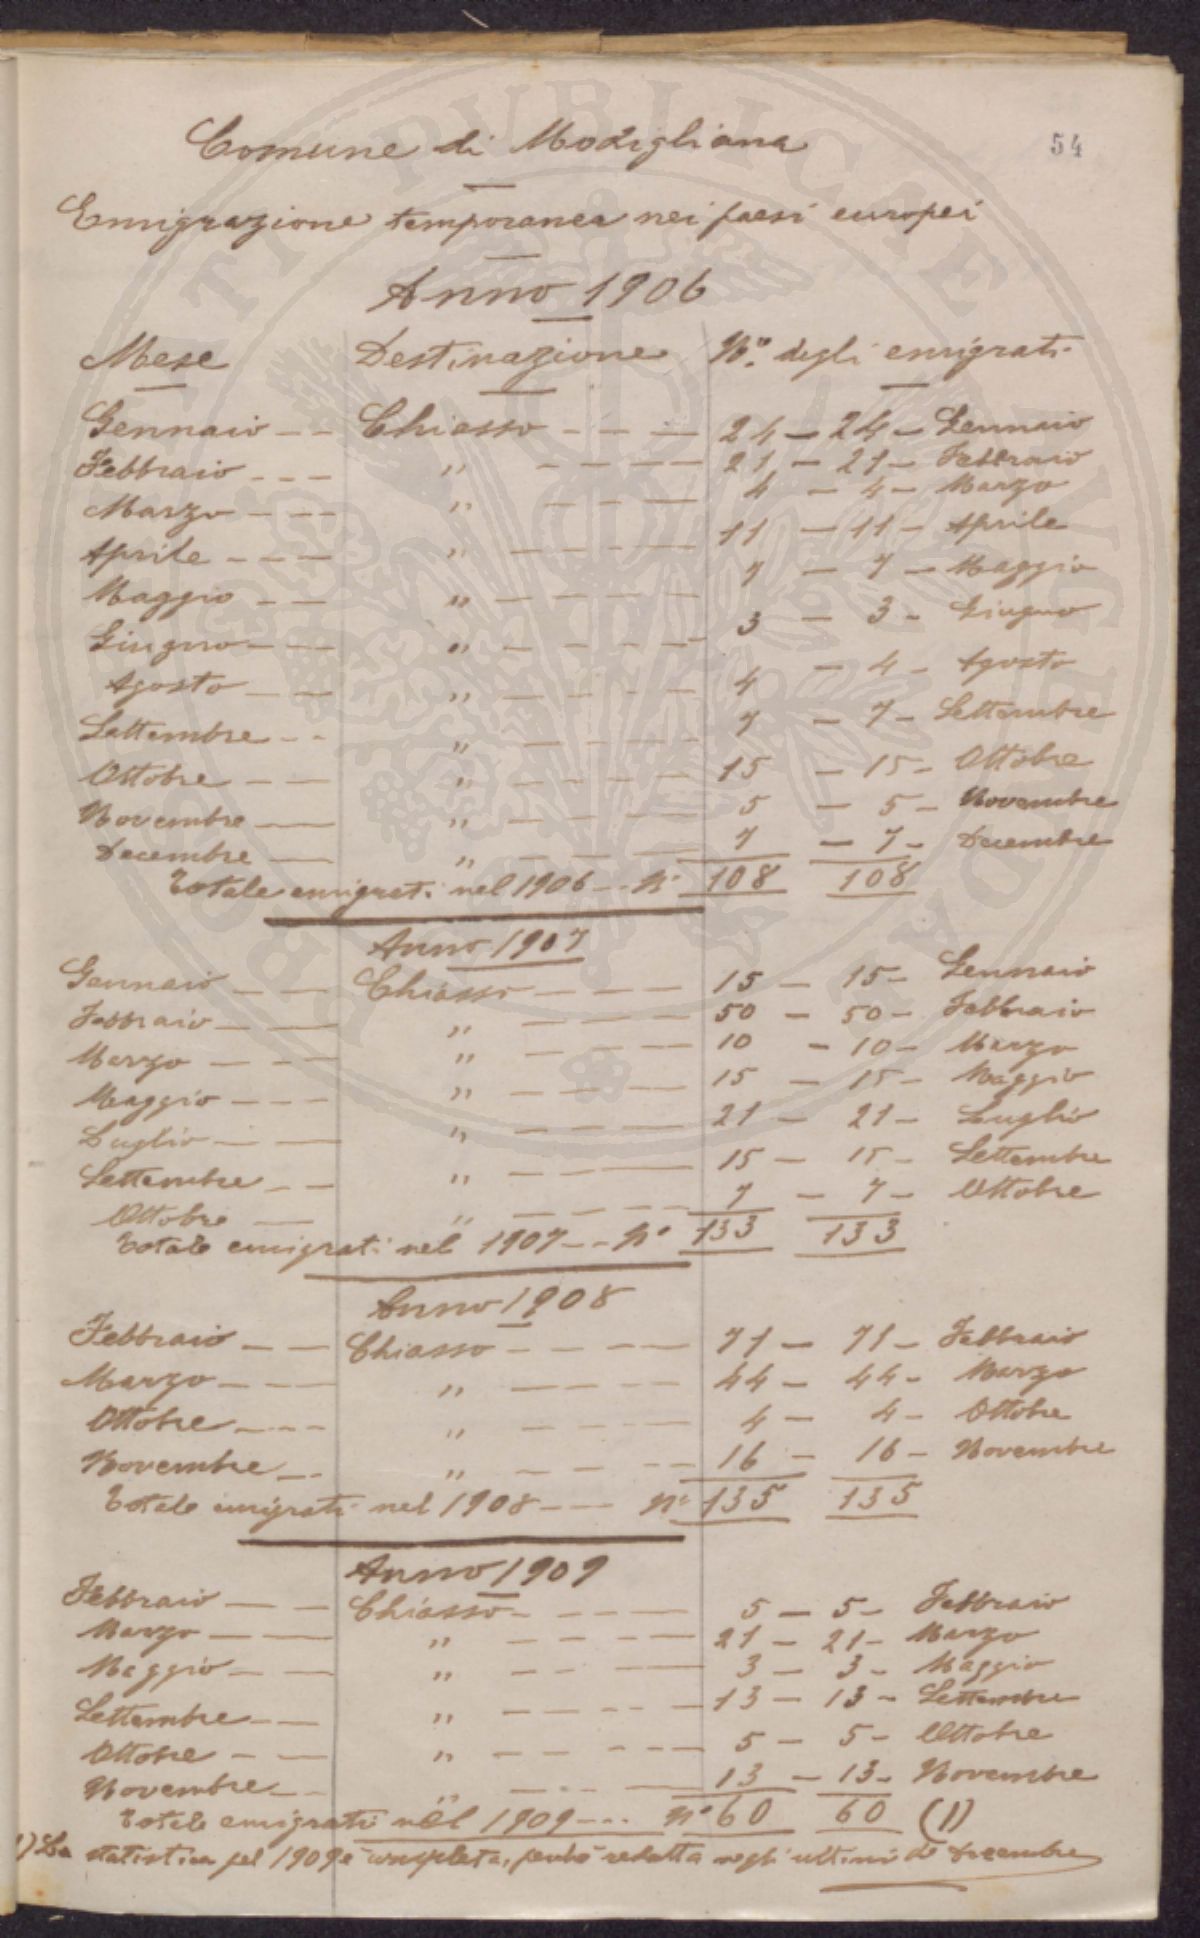 54
Comune di Modigliana
Emigrazione temporanea nei paesi europei
Anno 1906
Mese Destinazione N.ro degli emigrati
Gennaio -- Chiasso ---- 24 - 24 - Gennaio
Febbraio --- " ---- 21 - 21 - Febbraio
Marzo --- " ---- 4 - 4 - Marzo
Aprile --- " ----- 11 - 11 - Aprile
Maggio -- " ----- 7 - 7 - Maggio
Giugno --- " ----- 3 - 3 - Giugno
Agosto --- " ----- 4 - 4 - Agosto
Settembre -- " ---- 7 - 7 - Settembre
Ottobre -- " ----- 15 - 15 - Ottobre
Novembre -- " ----- 5 - 5 - Novembre
Decembre -- " ---- 7 - 7 - Decembre
Totale emigrati nel 1906 -- N° 108 108
Anno 1907
Gennaio -- Chiasso ---- 15 - 15 - Gennaio
Febbraio -- " ---- 50 - 50 - Febbraio
Marzo --- " ----- 10 - 10 - Marzo
Maggio --- " ---- 15 - 15 - Maggio
Luglio -- " ---- 21 - 21 - Luglio
Settembre -- " ---- 15 - 15 - Settembre
Ottobre -- " ----- 7 - 7 - Ottobre
Totale emigrati nel 1907 -- N° 133 133
Anno 1908
Febbraio -- Chiasso ---- 71 - 71 - Febbraio
Marzo --- " ---- 44 - 44 - Marzo
Ottobre ---- " ---- 4 - 4 - Ottobre
Novembre -- " ----- 16 - 16 - Novembre
Totale emigrati nel 1908 --- N° 135 135
Anno 1909
Febbraio -- Chiasso ---- 5 - 5 - Febbraio
Marzo -- " ---- 21 - 21 - Marzo
Maggio -- " --- 3 - 3 - Maggio
Settembre -- " ----- 13 - 13 - Settembre
Ottobre -- " ----- 5 - 5 - Ottobre
Novembre -- " ---- 13 - 13 - Novembre
Totale emigrati nel 1909 --- N° 60 60 (1)
1) La statistica pel 1909 è completa, perchè redatta negli ultimi di Decembre